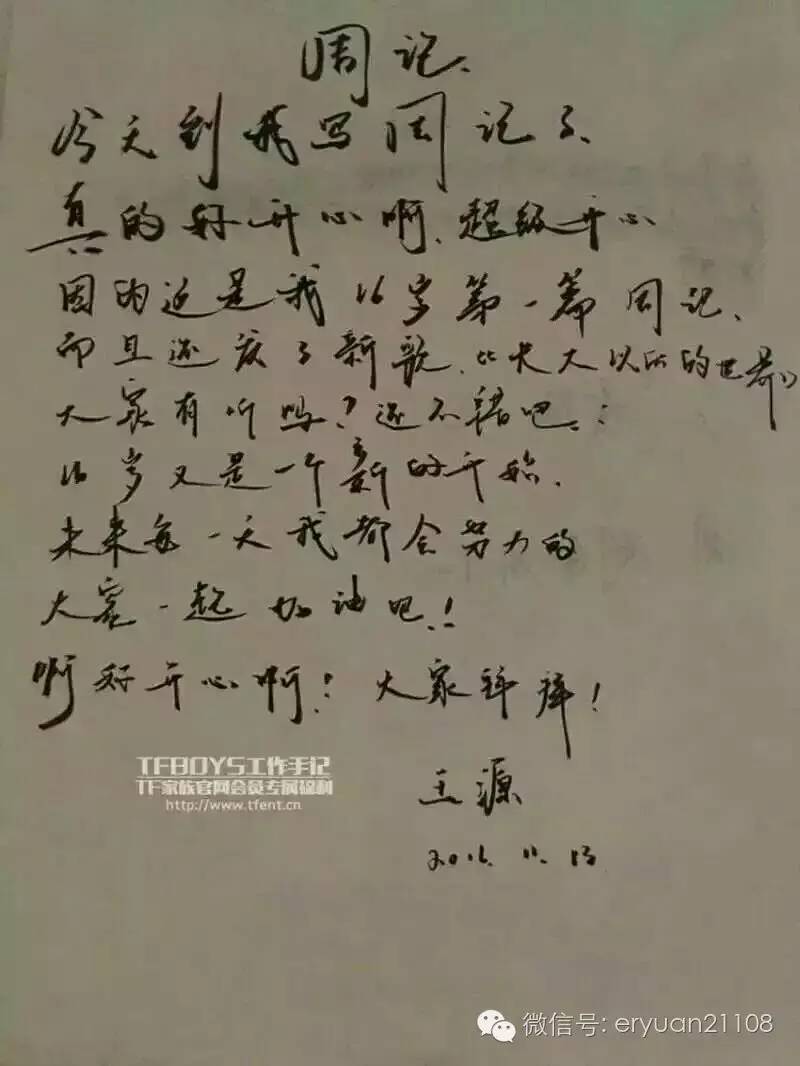 周记、
今天到我写周记了、
真的好开心啊、超级开心
因为这是我16岁第一篇周记、
而且还发了新歌、《长大以后的世界》
大家有听吗？还不错吧：
16岁又是一个新的开始、
未来每一天我都会努力的
大家一起加油吧！！
啊好开心啊！大家拜拜！
王源
2016.11.13
TFBOYS工作手记
TF家族官网会员专属福利
http://www.tfent.cn
微信号: eryuan21108